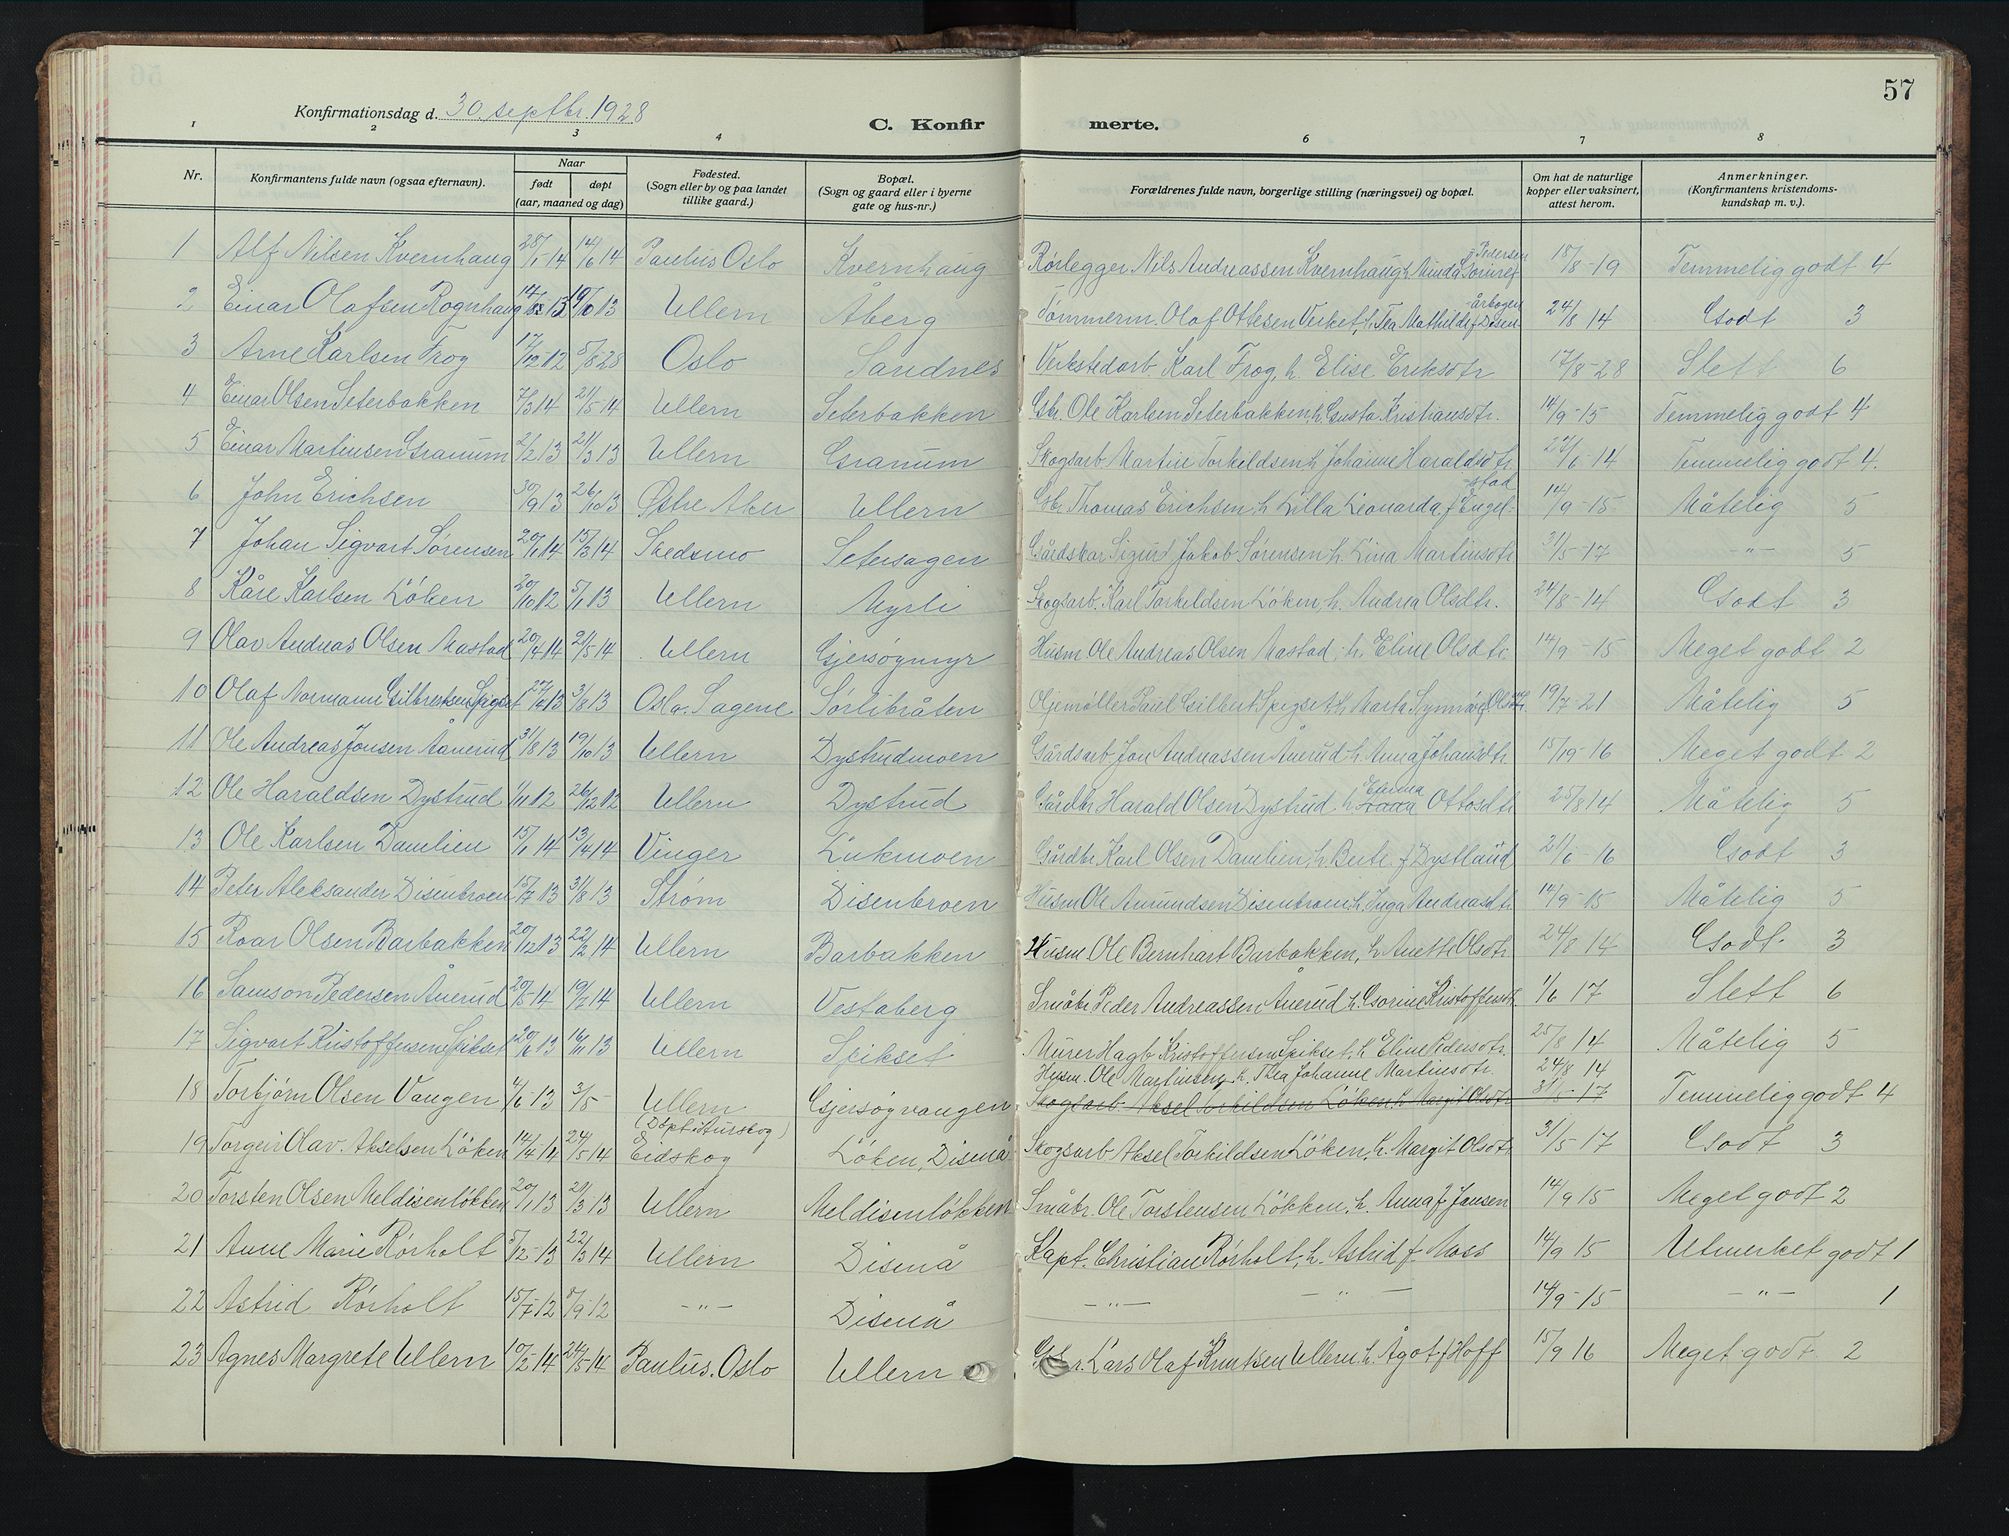 57
Konfirmationsdag d. 30. septbr. 1928
C. Konfirmerte.
1 2 3 4 6 7 8
Nr. | Konfirmantens fulde navn (ogsaa efternavn). | Naar født døpt (aar, maaned og dag) | Fødested. (Sogn eller by og paa landet tillike gaard.) | Bopæl. (Sogn og gaard eller i byerne gate og hus-nr.) | Forældrenes fulde navn, borgerlige stilling (næringsvei) og bopæl. | Om hat de naturlige kopper eller vaksinert, attest herom. | Anmerkninger. (Konfirmantens kristendoms-kundskap m. v.).
1 Alf Nilsen Kvernhaug 28/1-14 14/6 14 Paulus Oslo Kvernhaug Rørlegger Nils Andreassen Kvernhaug h. Pedersen 18/8-19 Temmelig godt 4
2 Einar Olafsen Rognhaug 19/10 13 Ullern Åberg Tømmerm. Olaf Ottesen Verket, h. Tea Mathilde f. Disen 24/8 14 Godt 3
3 Arne Karlsen Frog 17/12-12 5/8-28 Oslo Sandnes Verkstedarb. Karl Frog, h. Elise Eriksdtr 17/8-28 Slett 6
4 Einar Olsen Seterbakken 7/3 14 21/5-14 Ullern Seterbakken Gbr. Ole Karlsen Seterbakken, h. Gusta Kristiansdtr. 14/9-15 Temmelig godt 4
5 Einar Martinsen Granum 2/2 13 21/3 13 Ullern Granum Skogsarb. Martin Torkildsen h. Johanne Haraldsdtr. 27/6-14 Temmelig godt 4.
6 John Erichsen 30/9 13 26/10 13 Østre Aker Ullern Gbr. Thomas Erichsen, h. Lilla Leonarda f. Engelstad 14/9-15 Måtelig 5
7 Johan Sigvart Sørensen 20/1 14 15/3 14 Skedsmo Setersagen Gårdskar Sigurd Jakob Sørensen h. Lina Martinsdtr 31/5-17 -"- 5
8 Kåre Karlsen Løken 20/10 12 5/1 13 Ullern Myrli Skogsarb. Karl Torkildsen Løken, h. Andrea Olsdtr. 24/8-14 Godt 3
9 Olav Andreas Olsen Mastad 20/4 14 21/5 14 Ullern Gjersøgmyr Husm. Ole Andreas Olsen Mastad, h. Eline Olsdtr. 14/9-15 Meget godt 2
10 Olaf Normann Gilbertsen Spigset 3/8 13 Oslo. Sagene Sørlibråten Oljemøller Paul Gilbert Spigset, h. Marta 19/7-21 Måtelig 5
11 Ole Andreas Jonsen Ånerud 31/8 13 19/10 13 Ullern Dystrudmoen Gårdsarb. Jon Andreassen Ånerud h. Anna Johansdtr 15/9-16 Meget godt 2
12 Ole Haraldsen Dystrud 1/11 12 26/12 12 Ullern Dystrud Gårdbr Harald Olsen Dystrud. h. Ottosdtr 25/8 14 Måtelig 5
13 Ole Karlsen Damlien 15/1 14 13/4 14 Vinger Lukmoen Gårdbr. Karl Olsen Damlien, h. Berte f. Dystland 21/6-16 Godt 3
14 Peter Aleksander Disenbroen 15/7 13 31/8 13 Strøm Disenbroen Husm Ole Amundsen Disenbroen, h. Inga Andreasdtr. 14/9-15 Måtelig 5
15 Roar Olsen Barbakken 20/12 13 22/2 14 Ullern Barbakken Husm. Ole Bernhart Barbakken, h. Anette Olsdtr. 24/8 14 Godt. 3
16 Samson Pedersen Ånerud 20/5 14 19/7 14 Ullern Vestaberg Småbr. Peder Andreassen Ånerud h. Gorine Kristoffersdtr 1/6 17 Slett 6
17 Sigvart Kristoffersen Spikset 20/6 13 16/11 13 Ullern Spikset Murer Hagb. Kristoffersen Spikset, h. Eline Pedersdtr. 25/8 14 Måtelig 5
Husm. Ole Martinsen h. Thea Johanne Martinsdtr. 24/8 14
18 Torbjørn Olsen Vangen 4/6-13 3/5- Ullern (Døpt i Aurskog) Gjersøgvangen Skogsarb. Aksel Torkildsen Løken, h. Margit Olsdtr 31/5-17 Temmelig godt 4
19 Torgeir Olav Akselsen Løken 14/4-14 24/5 14 Eidskog Løken, Disenå Skogsarb. Aksel Torkildsen Løken, h. Margit Olsdtr 31/5-17 Godt 3
20 Torsten Olsen Meldisenløkken 20/1 13 21/3 13 Ullern Meldisenløkken Småbr. Ole Torstensen Løkken, h. Anna f. Jansen 14/9 15 Meget godt 2
21 Anne Marie Rørholt 5/12-13 22/3 14 Ullern Disenå Kapt. Christian Rørholt, h. Astrid f. Moss 14/9 15 Utmerket godt 1
22 Astrid Rørholt 15/7-12 8/9-12 -"- Disenå -"- -"- 14/9-15 -"- 1
23 Agnes Margrete Ullern 10/2-14 24/5-14 Paulus. Oslo Ullern Gbr. Lars Olaf Knutsen Ullern h. Ågot f. Hoff 15/9 16 Meget godt. 2